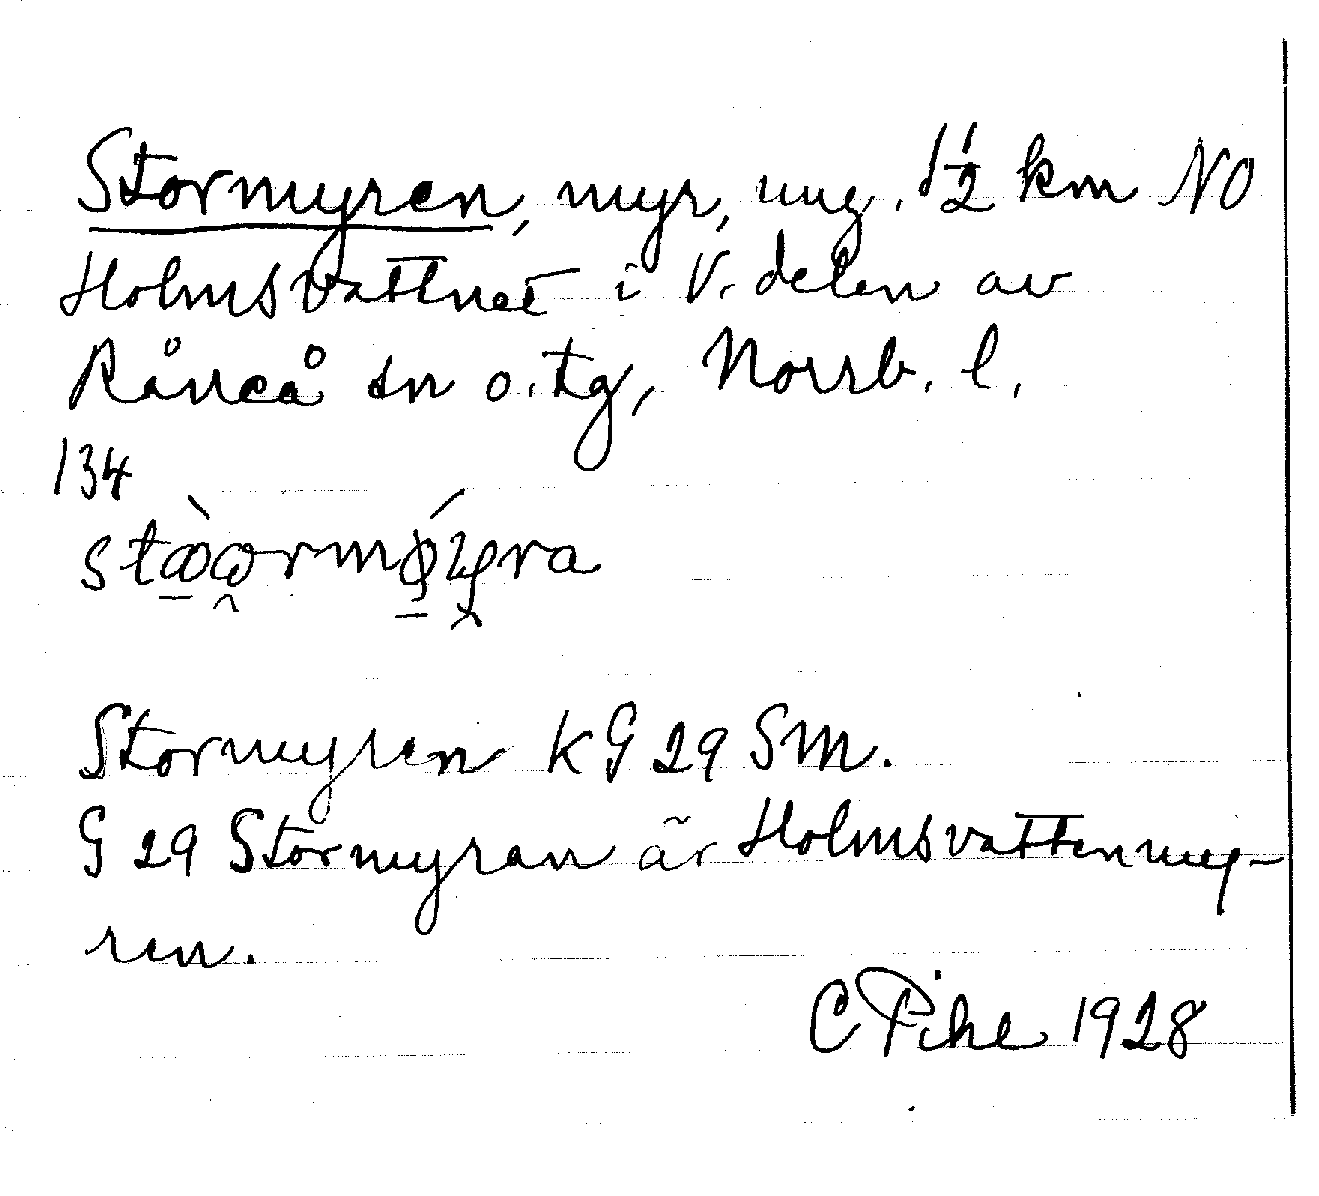 Stormyren, myr, ung. 1½ km NO
Holmsvattnet i V. delen av
Råneå sn o. tg, Norrb. l.
134
Stormyren KG 29 SM.
G 29 Stormyran är Holmsvattenmy-
ren.
C Pihl 1928